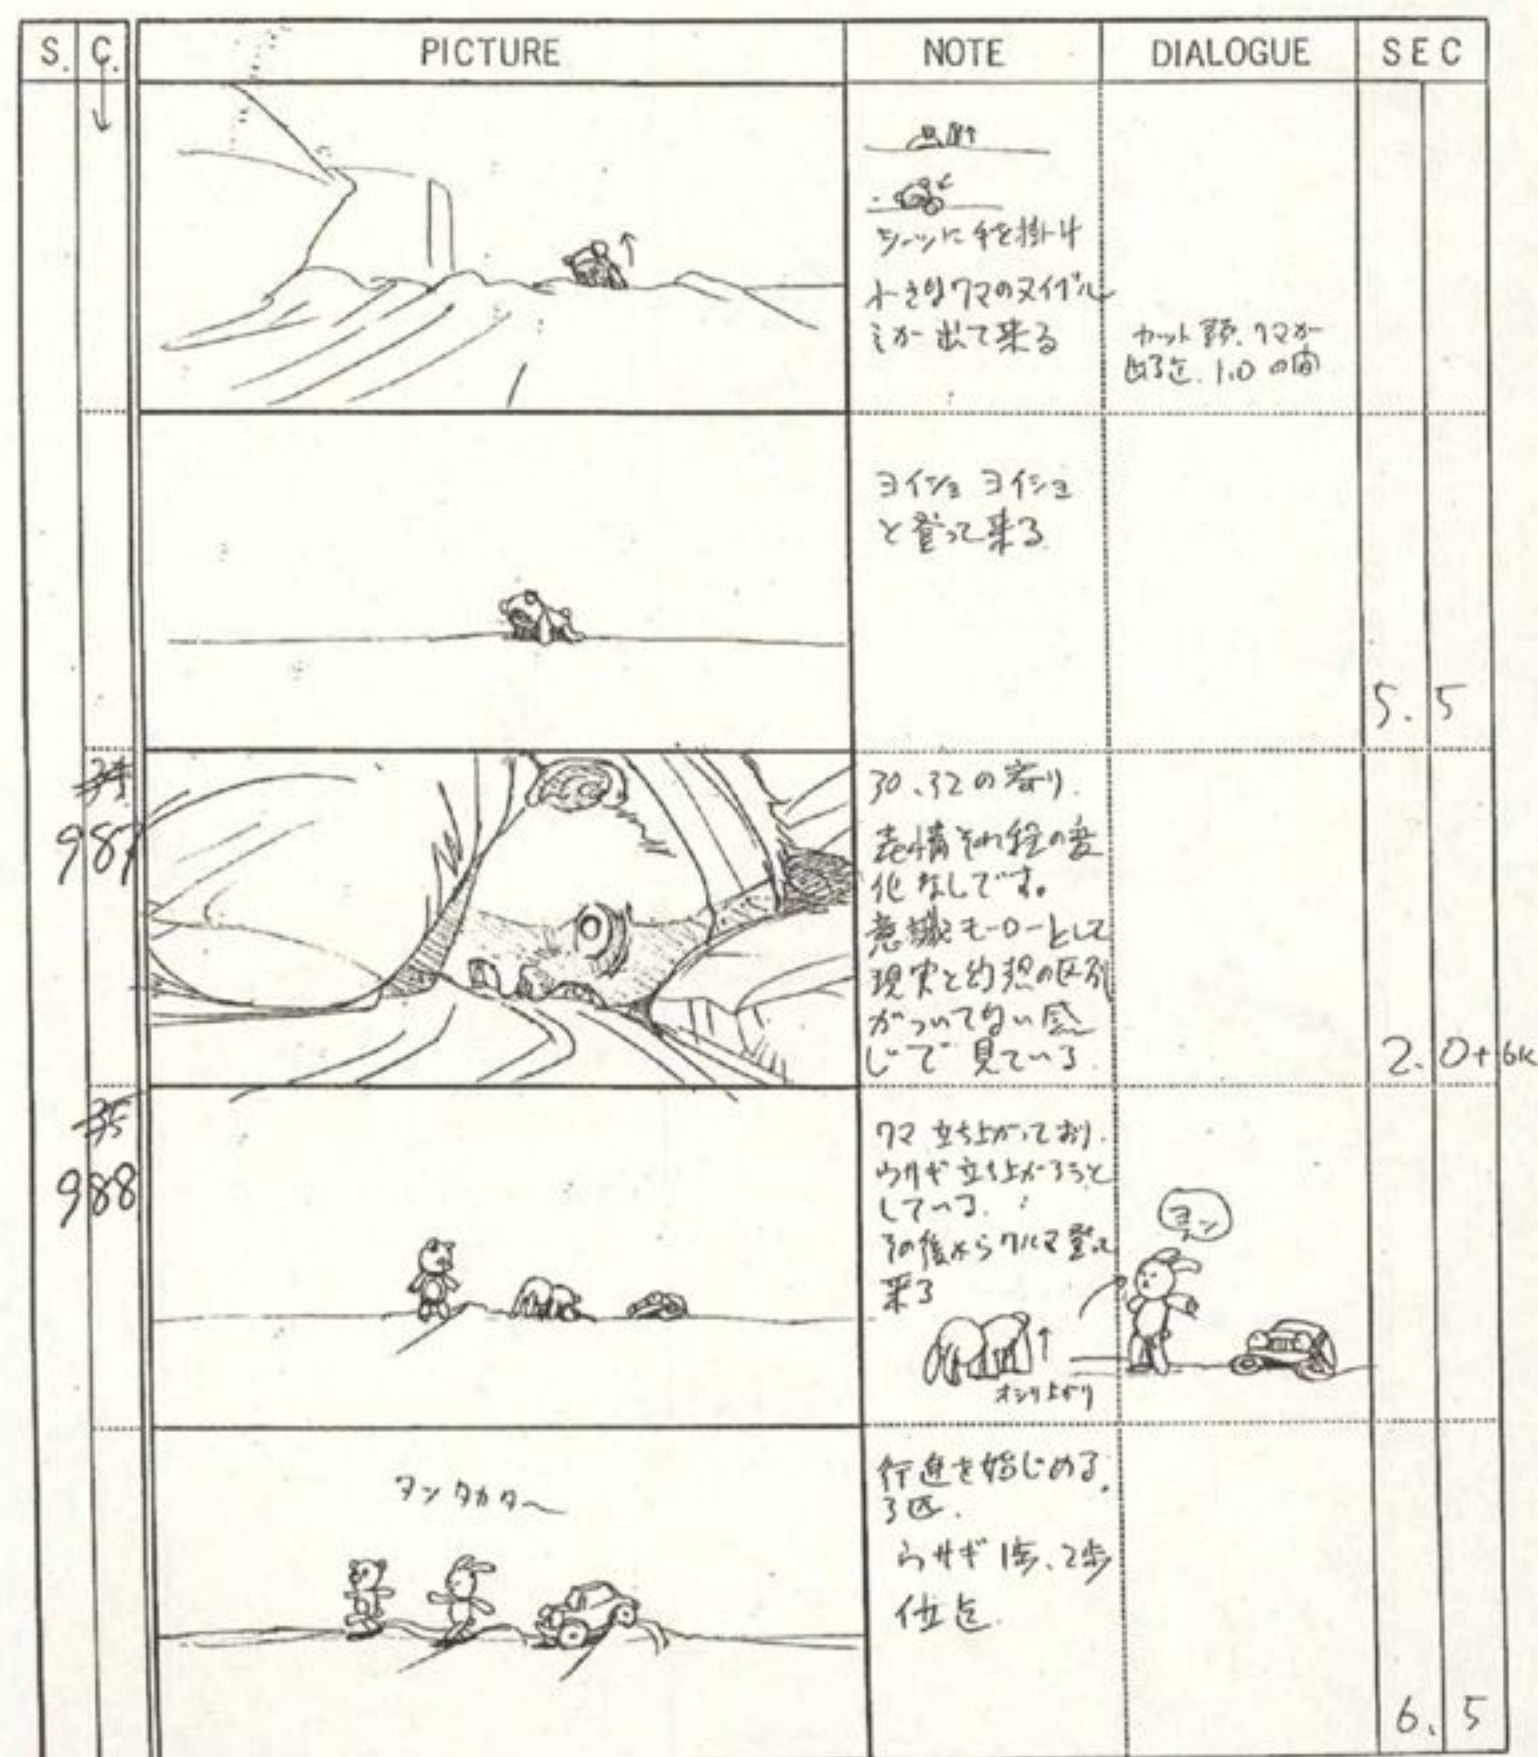 S. C. PICTURE NOTE DIALOGUE SEC
シーツに手を掛け
小さなクマのヌイグル
ミが出て来る
カット頭、クマが
出る迄、1.0の間
ヨイショ ヨイショ
と登って来る
5.5
34
987
30、32の寄り.
表情それ程の変
化なしです。
意識モーローとして
現実と幻想の区別
がついてない感
じで見ている.
2.0+6k
35
988
クマ 立ち上がっており.
ウサギ 立ち上がろうと
している.
その後からクルマ登って
来る
オシリ上がり
ヨン
タンタカター
行進を始じめる.
3匹.
ウサギ 1歩、2歩
位迄.
6.5